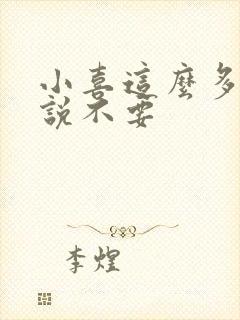 小喜這麼多
說不要
李煌